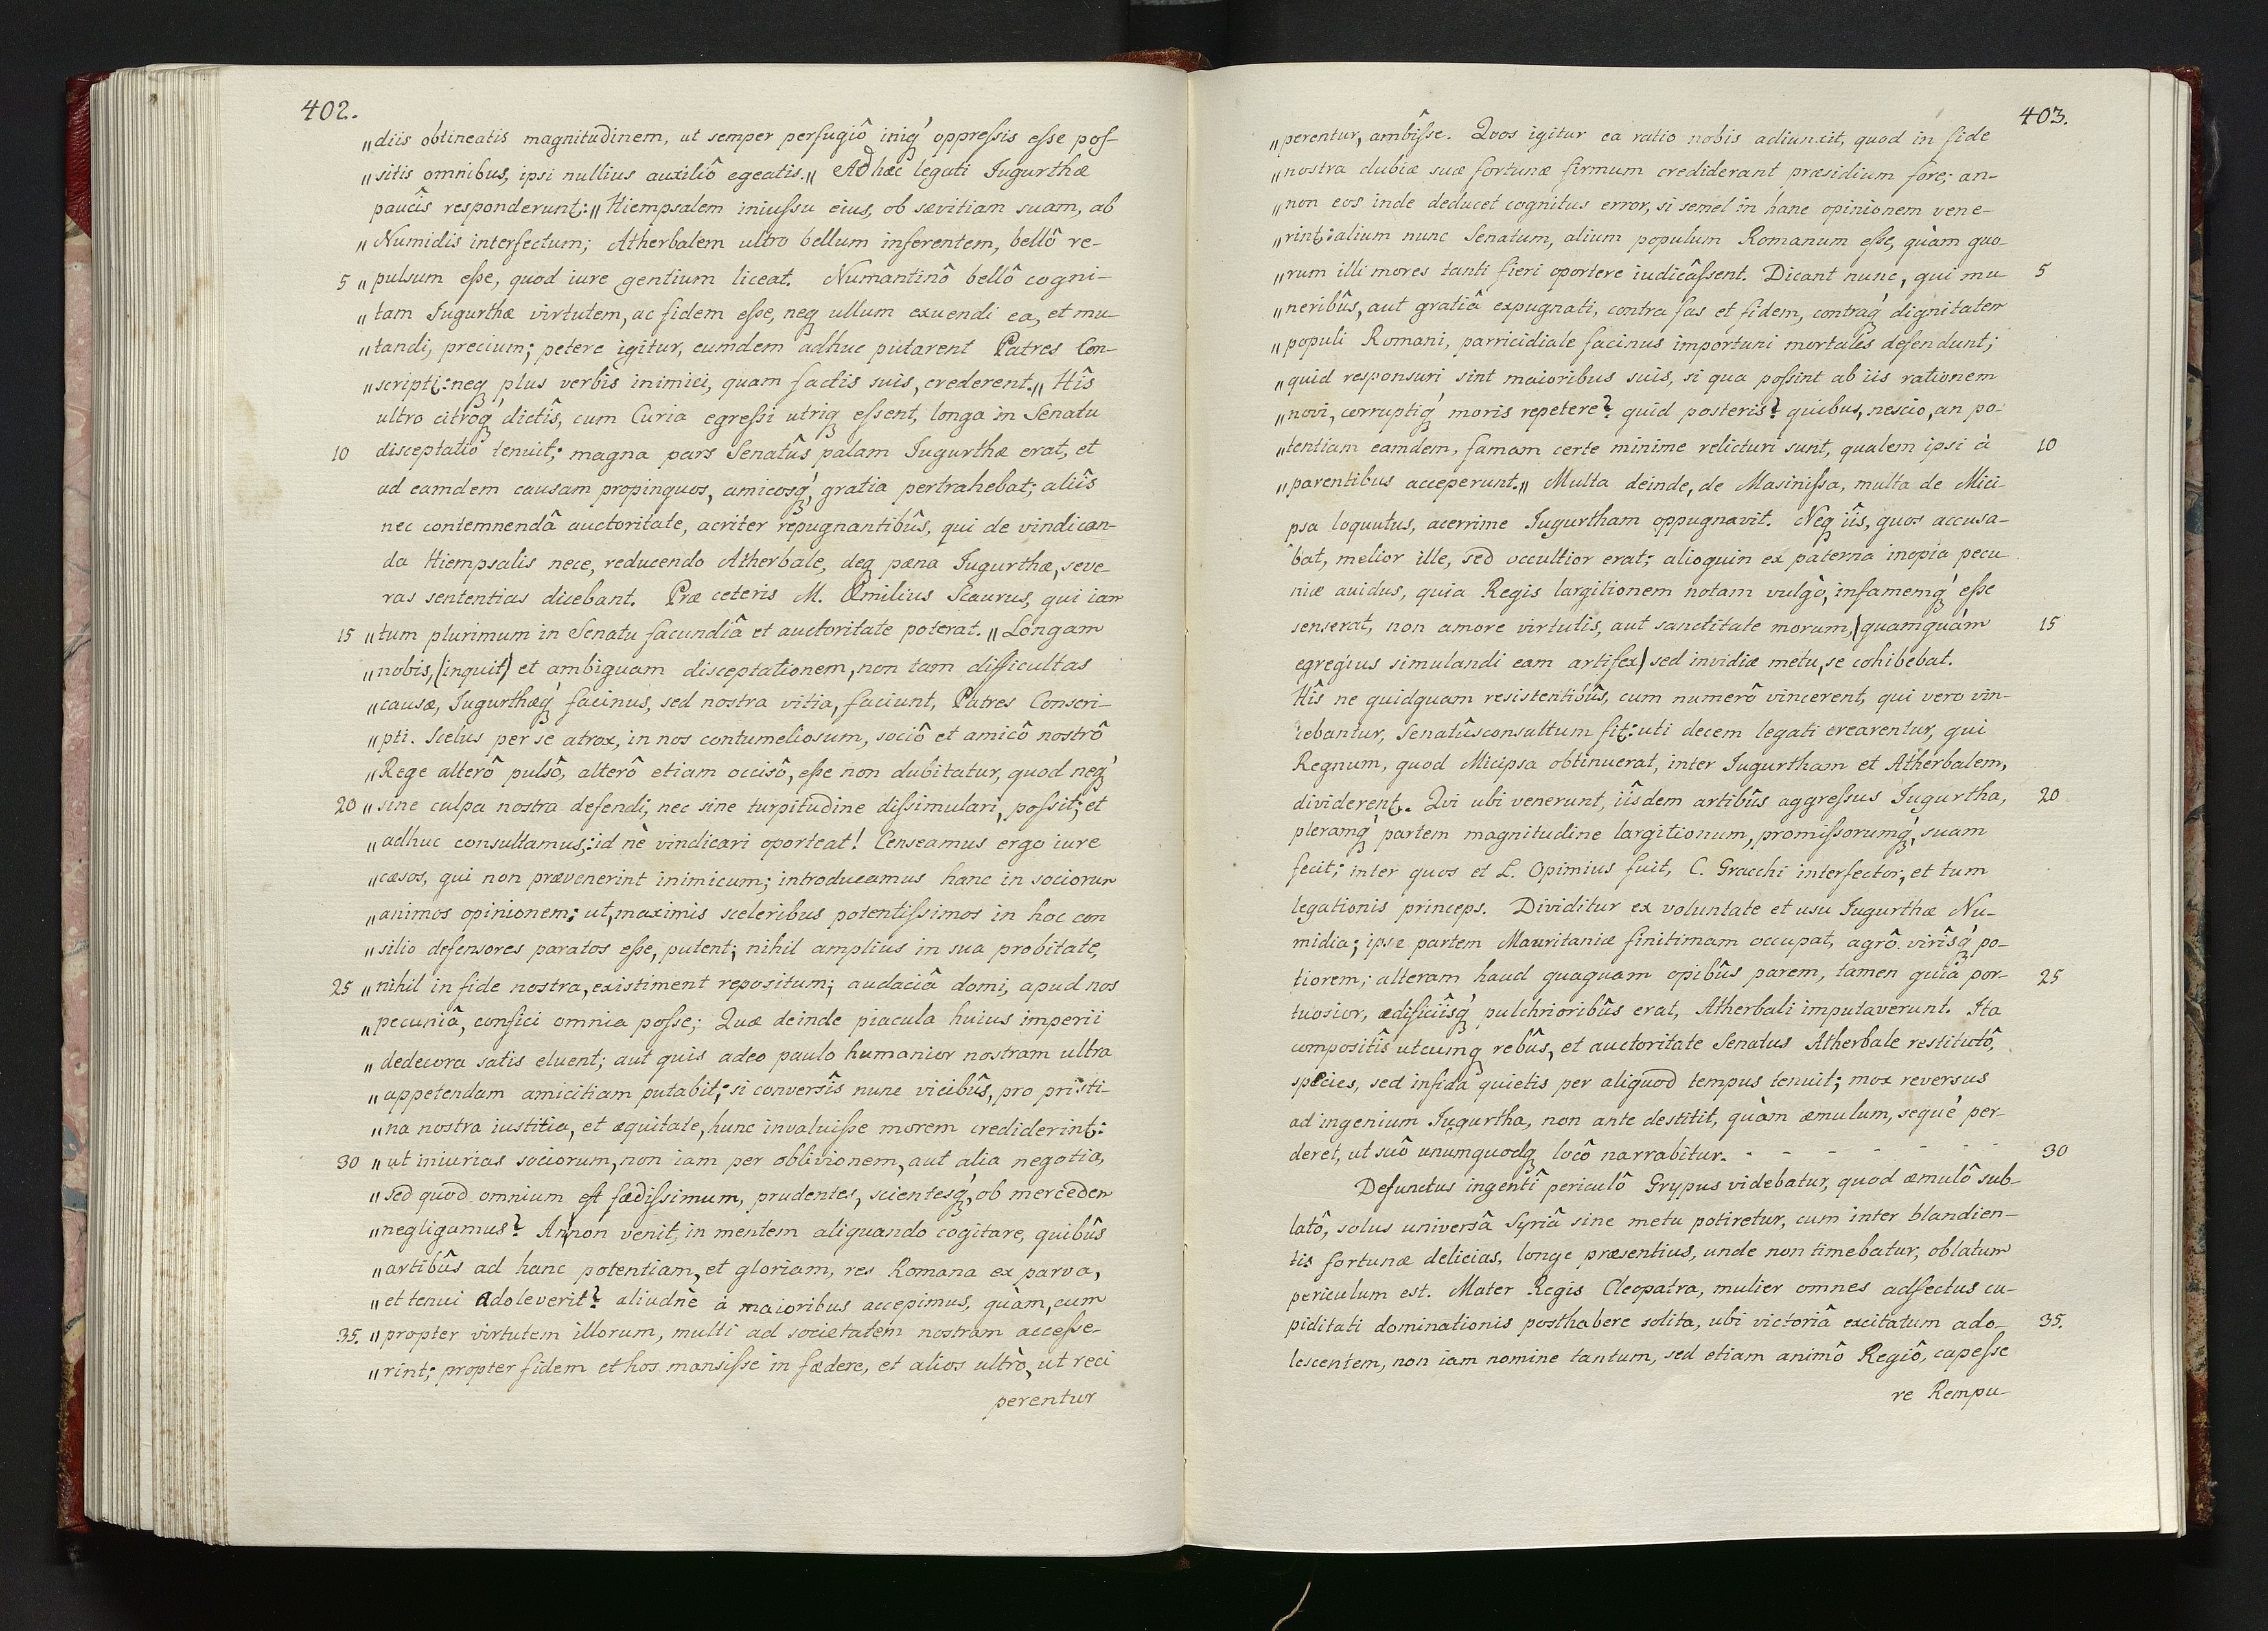 402.
„diis obtineatis magnitudinem, ut semper perfugiô iniq́ꝫ oppreſsis eſse poſ-
„sitis omnibus, ipsi nullius auxiliô egeatis.„ Ad hæc legati Iugurthæ
paucîs responderunt:„ Hiempsalem iniuſsu eius, ob sævitiam suam, ab
„Numidis interfectum; Atherbalem ultro bellum inferentem, bellô re-
5 „pulsum eſse, quod iure gentium liceat. Numantinô bellô cogni-
„tam Iugurthæ virtutem, ac fidem eſse, neqꝫ ullum exuendi ea, et mu-
„tandi, precium; petere igitur, eumdem adhuc putarent Patres Con-
„scripti: neqꝫ plus verbîs inimici, quam factis suis, crederent.„ Hîs
ultro citrôq́ꝫ dictîs, cum Curia egreſsi utriqꝫ eſsent, longa in Senatu
10 disceptatio tenuit; magna pars Senatûs palam Iugurthæ erat, et
ad eamdem causam propinquos, amicosq́ꝫ gratia pertrahebat; aliîs
nec contemnendâ auctoritate, acriter repugnantibûs, qui de vindican-
da Hiempsalis nece, reducendo Atherbale, deqꝫ pæna Iugurthæ, seve-
ras sententias dicebant. Præ ceteris M. Æmilius Scaurus, qui iam
15 „tum plurimum in Senatu facundiâ et auctoritate poterat. „Longam
„nobis, (inquit) et ambiguam disceptationem, non tam difficultas
„causæ, Iugurthæq́ꝫ facinus, sed nostra vitia, faciunt, Patres Conscri-
„pti. Scelus per se atrox, in nos contumeliosum, sociô et amicô nostrô
„Rege alterô pulsô, alterô etiam occisô, eſse non dubitatur, quod neq́ꝫ
20 „sine culpa nostra defendi, nec sine turpitudine diſsimulari, poſsit; et
„adhuc consultamus,: id nè vindicari oporteat! Censeamus ergo iure
„cæsos, qui non prævenerint inimicum; introducamus hanc in sociorum
„animos opinionem; ut, maximis sceleribus potentiſsimos in hoc con
„silio defensores paratos eſse, putent; nihil amplius in sua probitate,
25 „nihil in fide nostra, existiment repositum; audaciâ domi, apud nos
„pecuniâ, confici omnia poſse; Quæ deinde piacula huius imperii
„dedecora satis eluent; aut quis adeo paulo humanior nostram ultra
„appetendam amicitiam putabit; si conversîs nunc vicibûs, pro pristi-
„na nostra iustitia, et æquitate, hunc invaluiſse morem crediderint:
30 „ut iniurias sociorum, non iam per oblivionem, aut alia negotia,
„sed quod omnium eſt fædiſsimum, prudentes, scientesq́ꝫ, ob mercedem
„negligamus? An non venit, in mentem aliquando cogitare, quibûs
„artibûs ad hanc potentiam, et gloriam, res Romana ex parva,
„et tenui adoleverit? aliudnè à maioribus accepimus, quàm, cum
35. „propter virtutem illorum, multi ad societatem nostram acceſse-
„rint; propter fidem et hos mansiſse in fædere, et alios ultrò, ut reci
perentur
403.
„perentur, ambîſse. Quos igitur ea ratio nobis adiunxit, quod in fide
„nostra dubiæ suæ fortunæ firmum crediderant præsidium fore; an-
„non eos inde deducet cognitus error, si semel in hanc opinionem vene-
„rint: alium nunc Senatum, alium populum Romanum eſse, quàm quo-
„rum illi mores tanti fieri oportere iudicâſsent. Dicant nunc, qui mu- 5
„neribûs, aut gratiâ expugnati, contra fas et fidem, contraq́ꝫ dignitatem
„populi Romani, parricidiale facinus importuni mortales defendunt;
„quid responsuri sint maioribus suis, si qua poſsint ab iis rationem
„novi, corruptiq́ꝫ moris repetere? quid posteris? quibus, nescio, an po-
„tentiam eamdem, famam certe minime relicturi sunt, qualem ipsi à 10
„parentibus acceperunt.„ Multa deinde, de Masiniſsa, multa de Mici-
psa loquutus, acerrime Iugurtham oppugnavit. Neqꝫ iîs, quos accusa-
bat, melior ille, sed occultior erat; alioquin ex paterna inopia pecu
niæ avidus, quia Regis largitionem notam vulgò, infamemq́ꝫ eſse
senserat, non amore virtutis, aut sanctitate morum, (quamquàm 15
egregius simulandi eam artifex) sed invidiæ metu, se cohibebat.
Hîs ne quidquam resistentibûs, cum numerô vincerent, qui vero vin-
cebantur, Senatûsconsultum fit: uti decem legati crearentur, qui
Regnum, quod Micipsa obtinuerat, inter Iugurtham et Atherbalem,
dividerent. Qui ubi venerunt, iîsdem artibûs aggreſsus Iugurtha, 20
pleramq́ꝫ partem magnitudine largitionum, promiſsorumq́ꝫ, suam
fecit; inter quos et L. Opimius fuit, C. Gracchi interfector, et tum
legationis princeps. Dividitur ex voluntate et usu Iugurthæ Nu-
midia; ipse partem Mauritaniæ finitimam occupat, agrô virîsq́ꝫ po-
tiorem; alteram haud quaquam opibûs parem, tamen quià por- 25
tuosior, ædificiîsq́ꝫ pulchrioribûs erat, Atherbali imputaverunt. Ita
compositîs utcumqꝫ rebûs, et auctoritate Senatus Atherbale restitutô,
species, sed infida quietis per aliquod tempus tenuit; mox reversus
ad ingenium Iugurtha, non ante destitit, quàm æmulum, sequé per-
deret, ut suô unumquodqꝫ locô narrabitur. - - - - - - - 30
Defunctus ingentî periculô Grypus videbatur, quod æmulô sub-
latô, solus universâ Syriâ sine metu potiretur, cum inter blandien-
tis fortunæ delicias, longe præsentius, unde non timebatur, oblatum
periculum est. Mater Regis Cleopatra, mulier omnes adfectus cu-
piditati dominationis posthabere solita, ubi victoriâ excitatum ado- 35.
lescentem, non iam nomine tantum, sed etiam animô Regiô, capeſse
re Rempu-